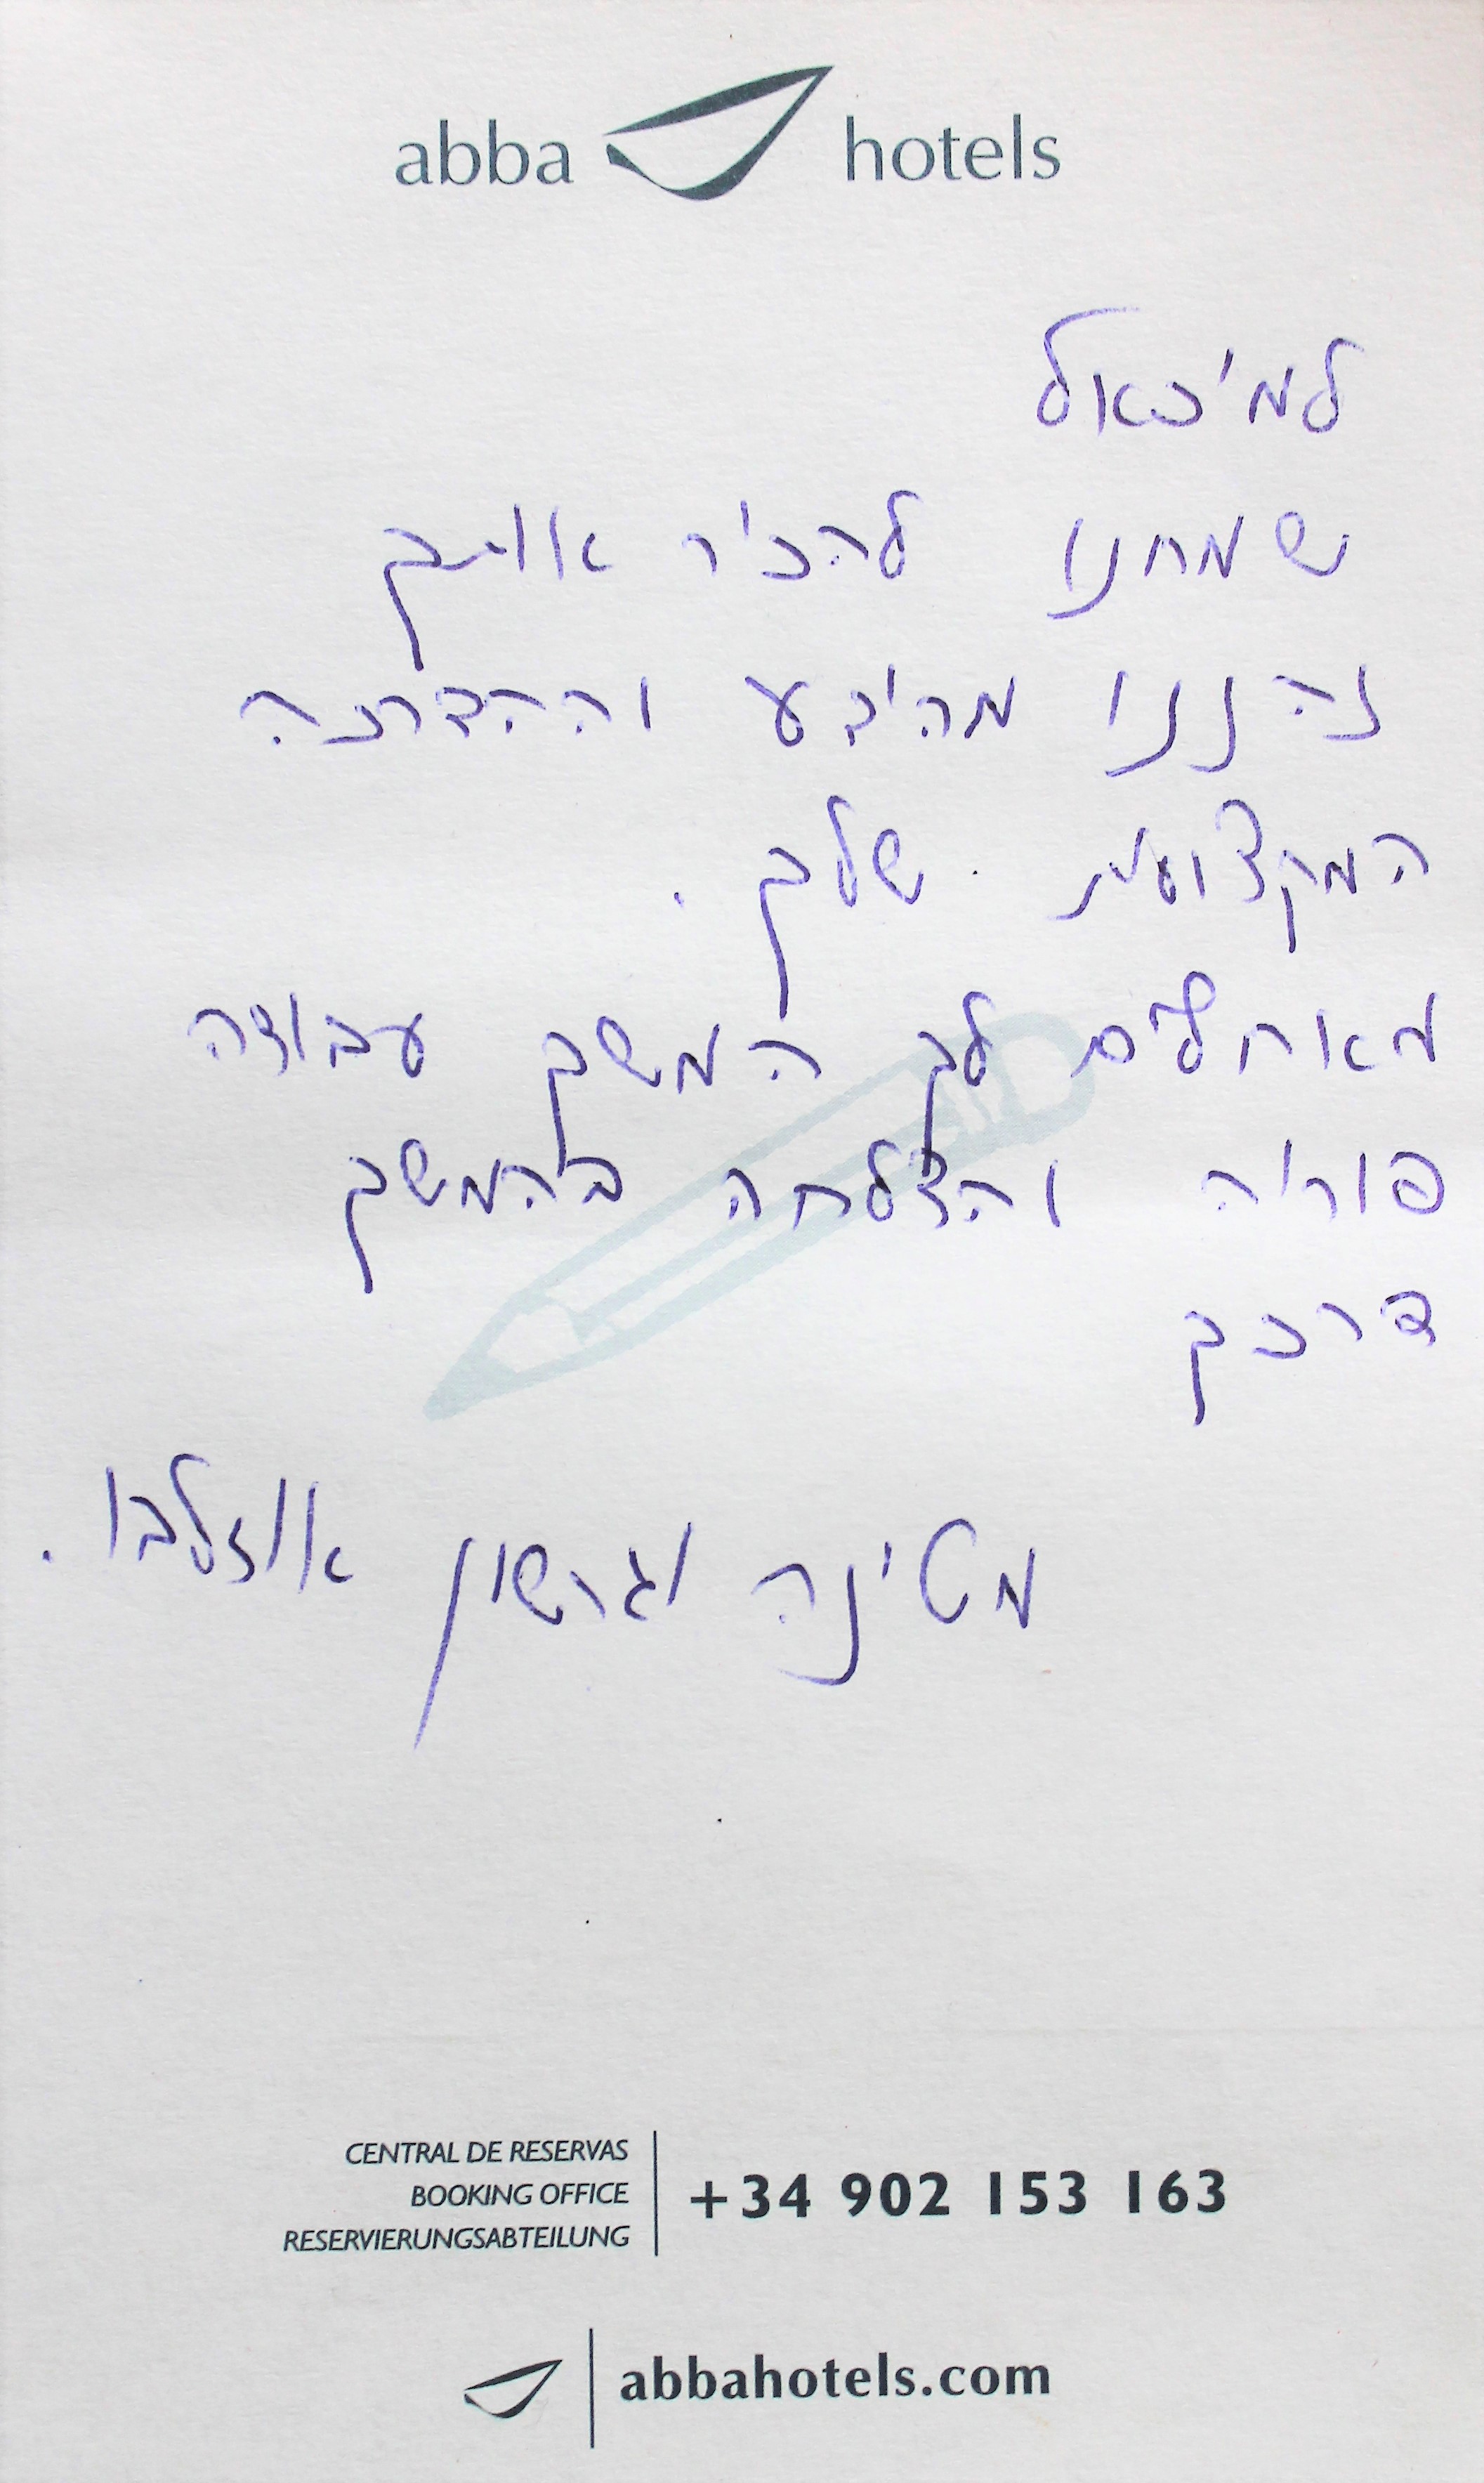 abba hotels
למיכאל
שמחנו להכיר אותך
נהננו מהידע וההדרכה
המקצועית שלך.
מאחלים לך המשך עבודה
פוריה והצלחה בהמשך
דרכך
מטינה וגרשון אוזלבו.
CENTRAL DE RESERVAS
BOOKING OFFICE
RESERVIERUNGSABTEILUNG
+34 902 153 163
abbahotels.com